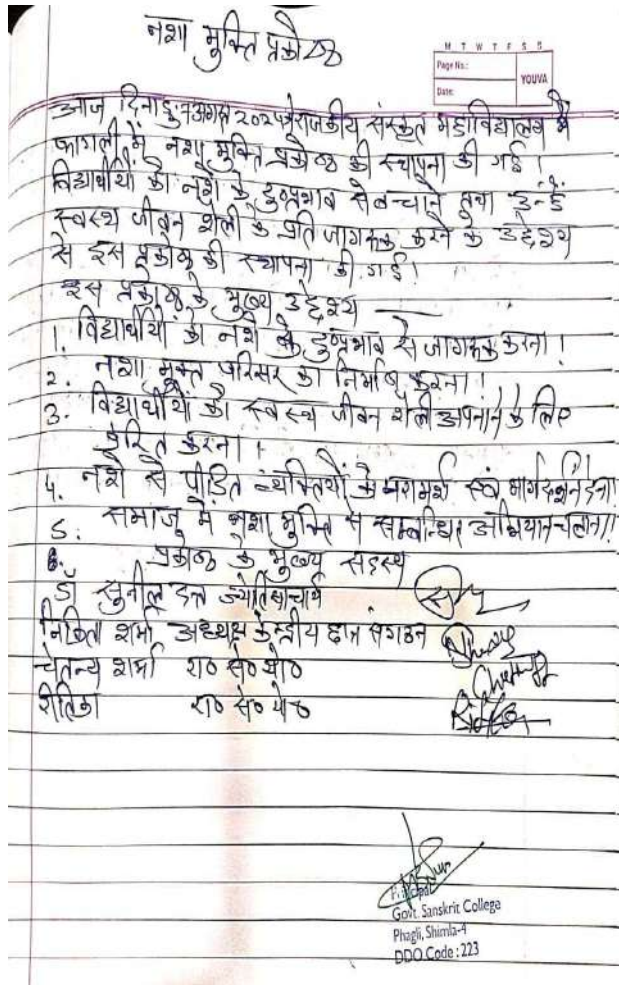 नशा मुक्ति प्रकोष्ठ
M T W T F S S
Page No.:
YOUVA
Date:
आज दिनाङ्क अगस्त २०२५ को राजकीय संस्कृत महाविद्यालय में
फागली में नशा मुक्ति प्रकोष्ठ की स्थापना की गई।
विद्यार्थीयों को नशे के दुष्प्रभाव से बचाने तथा उन्हें
स्वस्थ जीवन शैली के प्रति जागरूक करने के उद्देश्य
से इस प्रकोष्ठ की स्थापना की गई।
इस प्रकोष्ठ के मुख्य उद्देश्य —
1. विद्यार्थीयों को नशे के दुष्प्रभाव से जागरूक करना।
2. नशा मुक्त परिसर का निर्माण करना।
3. विद्यार्थीयों को स्वस्थ जीवन शैली अपनाने के लिए
प्रेरित करना।
4. नशे से पीड़ित व्यक्तियों को परामर्श एवं मार्गदर्शन देना।
5. समाज में नशा मुक्ति से सम्बन्धित अभियान चलाना।
6. प्रकोष्ठ के मुख्य सदस्य
डॉ सुनील दत्त ज्योतिषाचार्य
निकिता शर्मा अध्यक्ष केन्द्रीय छात्र संगठन
चेतन्य शर्मा रा० से० यो०
रीतिका रा० से० यो०
Principal
Govt. Sanskrit College
Phagli, Shimla-4
DDO Code : 223